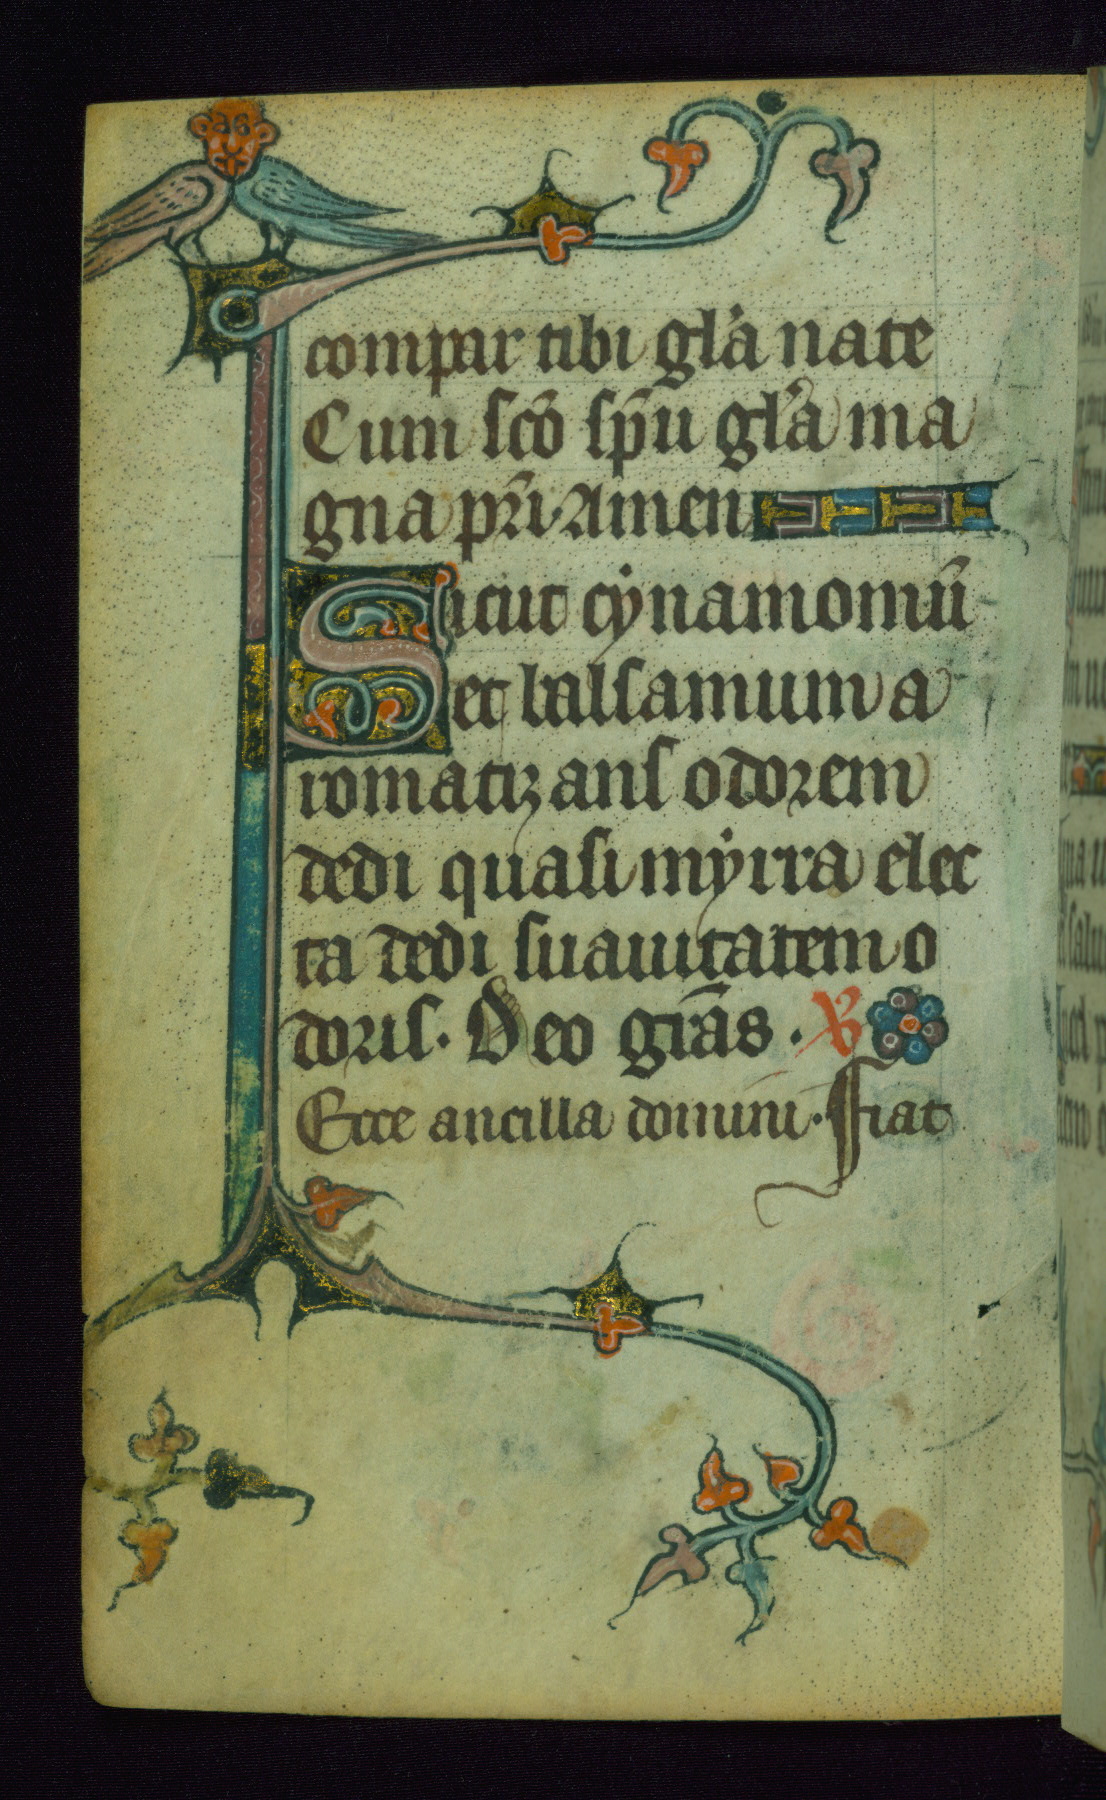 compar tibi gl'a nate
Cum sc̄o sp̄u gl'a ma
gna pr̄i. Amen
Sicut cẏnamomū
et balsamum a
romatizans odorem
dedi quasi mẏrra elec
ta dedi suauitatem o
doris. Deo grā̄s. 
Ecce ancilla domini. Fiat